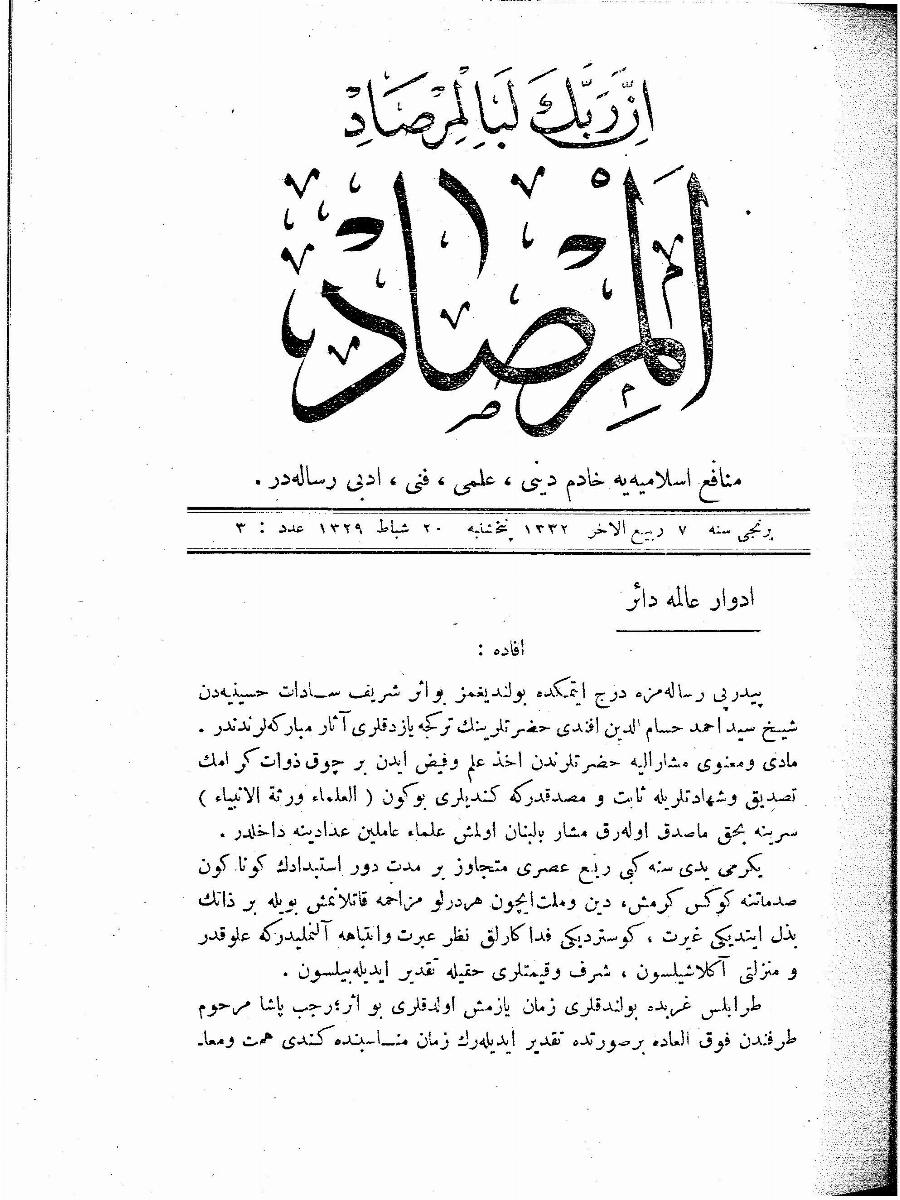 اِنَّ رَبَّكَ لَبِالْمِرْصَادِ
اَلْمِرْصَاد
منافع اسلاميه‌يه خادم دينى ، علمى ، فنى ، ادبى رساله‌در .
برنجى سنه ٧ ربيع الاخر ١٣٣٢ پنجشنبه ٢٠ شباط ١٣٢٩ عدد : ٣
ادوار عالمه دائر
افاده :
پيدرپى رساله‌مزه درج ايتمكده بولنديغمز بو اثر شريف سادات حسينيه‌دن
شيخ سيد احمد حسام الدين افندى حضرتلرينك تركجه يازدقلرى آثار مباركه‌لرندندر .
مادى ومعنوى مشاراليه حضرتلرندن اخذ علم وفيض ايدن بر چوق ذوات كرامك
تصديق وشهادتلريله ثابت و مصدقدركه كنديلرى بوكون ( العلماء ورثة الانبياء )
سرينه بحق ماصدق اوله‌رق مشار بالبنان اولمش علماء عاملين عدادينه داخلدر .
يكرمى يدى سنه كبى ربع عصرى متجاوز بر مدت دور استبدادك كونا كون
صدماتنه كوكس كرمش، دين وملت ايچون هردرلو مزاحمه قاتلانمش بويله بر ذاتك
بذل ايتديكى غيرت ، كوسترديكى فداكارلق نظر عبرت وانتباهه آلنمليدركه علوقدر
و منزلتى آكلاشيلسون ، شرف وقيمتلرى حقيله تقدير ايديله‌بيلسون .
طرابلس غربده بولندقلرى زمان يازمش اولدقلرى بو اثر؛ رجب پاشا مرحوم
طرفندن فوق العاده برصورتده تقدير ايديله‌رك زمان مناسبنده كندى همت ومعا-